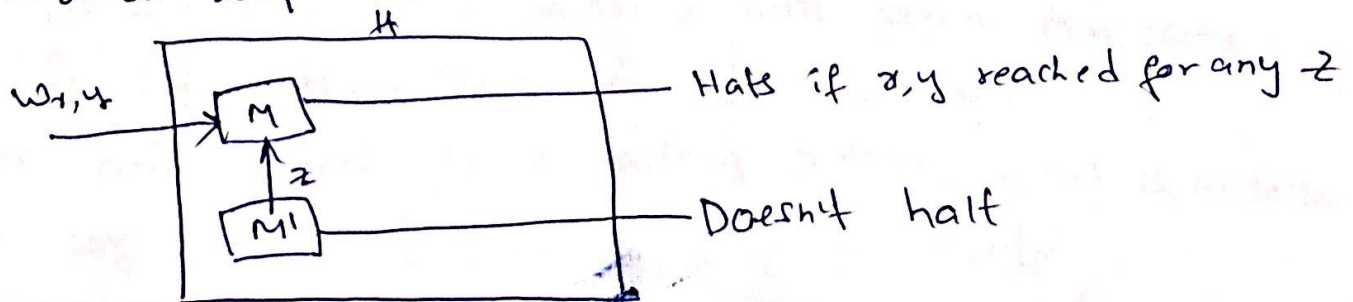 H
Wx,y
M
Hats if x,y reached for any z
z
M'
Doesn't halt